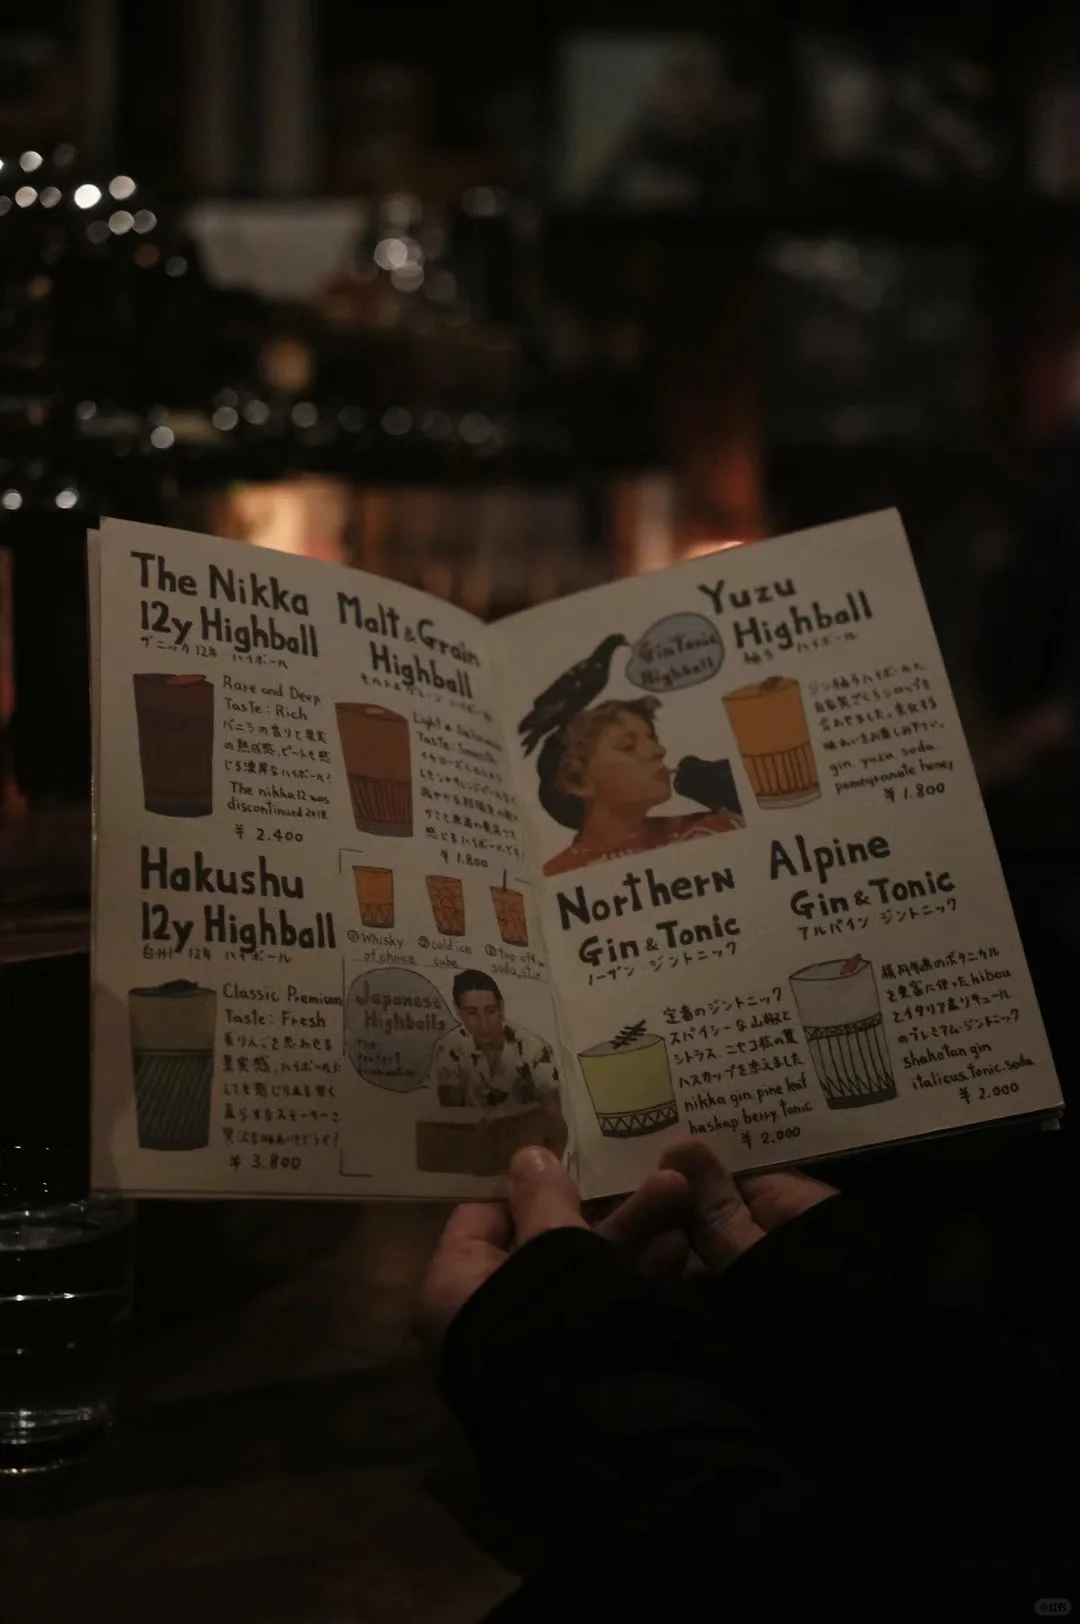 The Nikka
12y Highball
ザ・ニッカ 12年 ハイボール
Rare and Deep
Taste: Rich
バニラの香りと果実
の熟成感、ピートも感
じる濃厚なハイボール!
The nikka12 was
discontinued
¥ 2.400
Malt & Grain
Highball
モルト&グレーン ハイボール
Light & Delicious
Taste: Smooth
感じるハイボールです!
¥ 1.800
Hakushu
12y Highball
白州 12年 ハイボール
Classic Premium
Taste: Fresh
青りんごを思わせる
果実感、ハイボールに
しても感じりんる甘く
¥ 3.800
①Whisky
of choice
②cold ice
cube
③top off
soda, stir
Japanese
Highballs
The
Perfect
Gin Tonic
Highball
Yuzu
Highball
柚子 ハイボール
ジン柚子ハイボールに
自家製ざくろシロップを
合わせました。
味わいをお楽しみ下さい。
gin. yuzu soda
pomegranate honey
¥ 1.800
Northern
Gin & Tonic
ノーザン・ジントニック
定番のジントニック
スパイシーな山椒と
シトラス、ニセコ松の葉
ハスカップを添えました
nikka gin. pine leaf
hashap berry. tonic
¥ 2.000
Alpine
Gin & Tonic
アルパイン・ジントニック
積丹半島のボタニカル
を豊富に使ったkibou
とイタリア産リキュール
のプレミアム・ジントニック
shakotan gin
italicus. tonic. soda
¥ 2.000
小红书